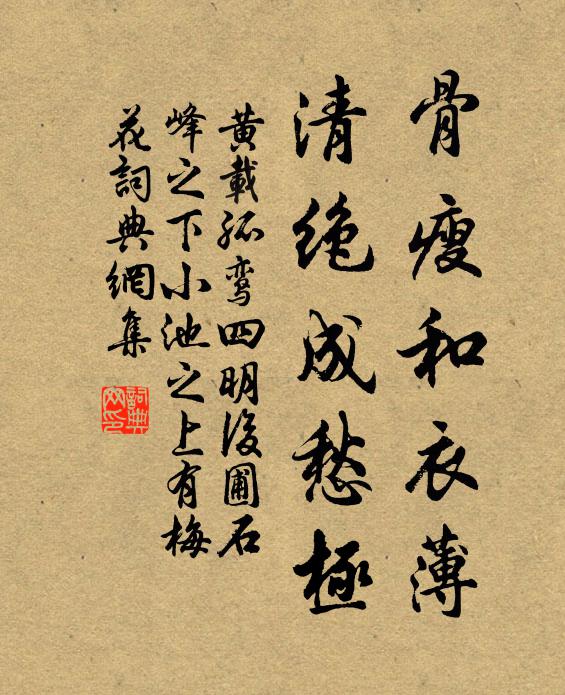 骨瘦和衣薄
清绝成愁極
黄載孤鸾四明後圃石
峰之下小池之上有梅
花詞典網集
詞典
网印